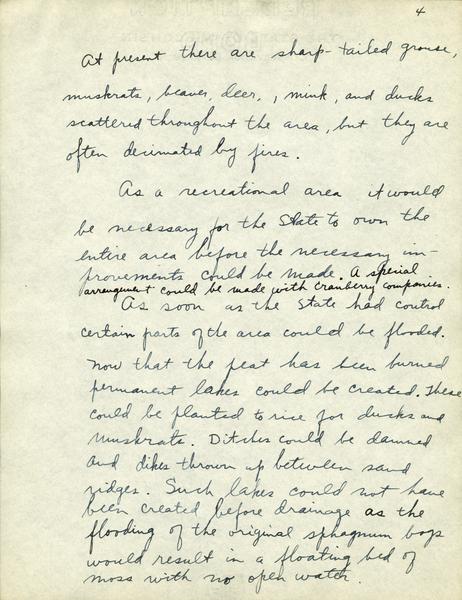 4
At present there are sharp-tailed grouse,
muskrats, beaver, deer, , mink, and ducks
scattered throughout the area, but they are
often decimated by fires.
As a recreational area it would
be necessary for the State to own the
entire area before the necessary im-
provements could be made. A special
arrangement could be made with cranberry companies.
As soon as the State had control
certain parts of the area could be flooded.
Now that the peat has been burned
permanent lakes could be created. These
could be planted to rice for ducks and
muskrats. Ditches could be dammed
and dikes thrown up between sand
ridges. Such lakes could not have
been created before drainage as the
flooding of the original sphagnum bogs
would result in a floating bed of
moss with no open water.